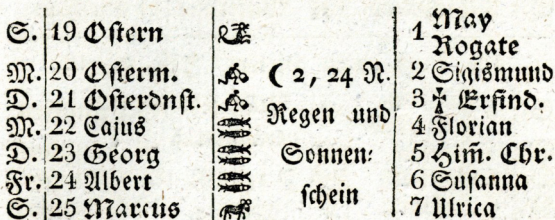 S. 19 Ostern 1 May Rogate
M. 20 Osterm. ( 2, 24 N. 2 Sigismund
D. 21 Osterdnst. Regen und 3 ☨ Erfind.
M. 22 Cajus 4 Florian
D. 23 Georg Sonnen⸗ 5 Him̄. Chr.
Fr. 24 Albert schein 6 Susanna
S. 25 Marcus 7 Ulrica